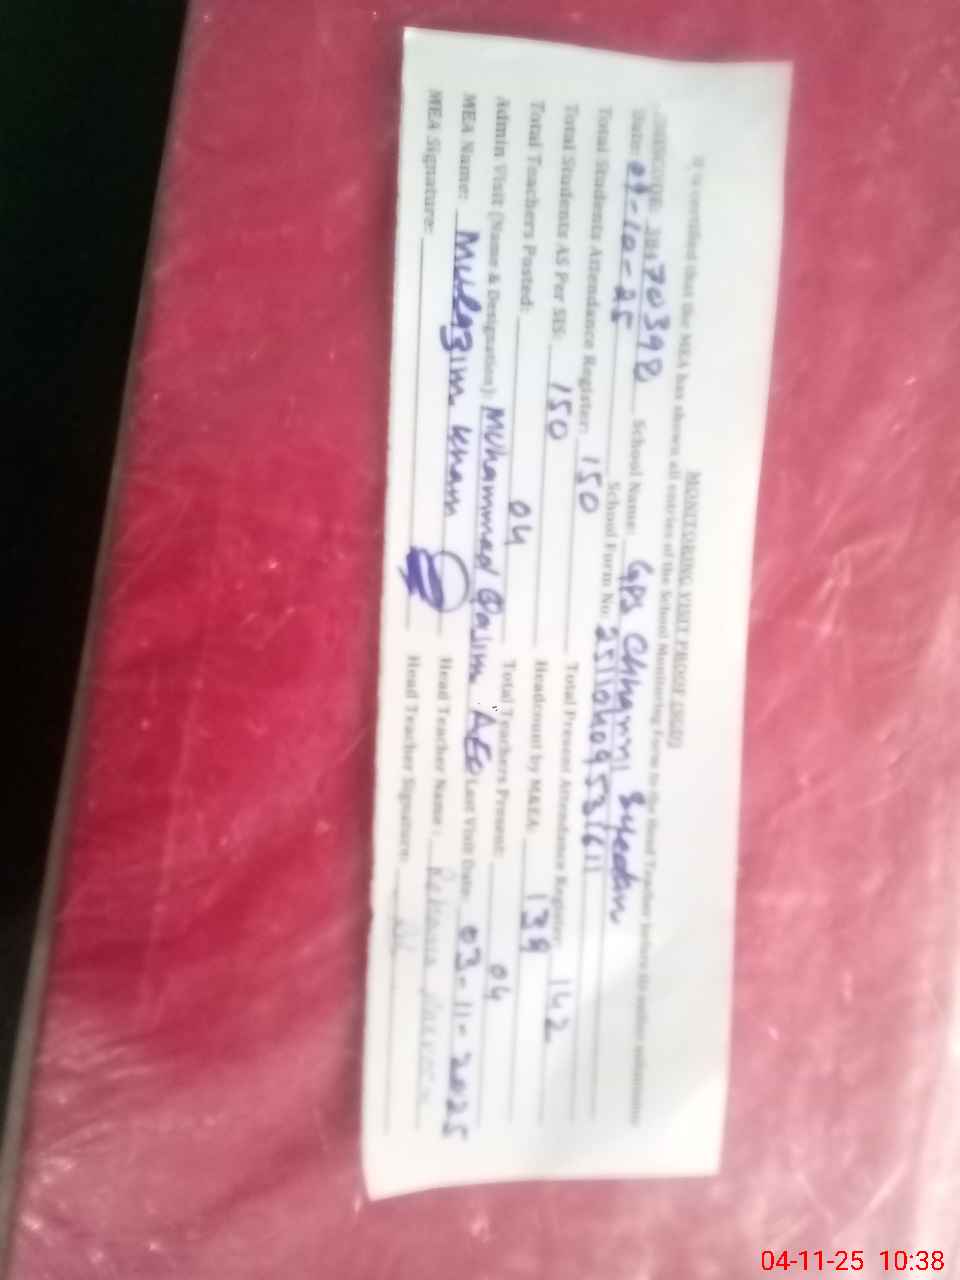 MONITORING VISIT PROOF (SED)
It is certified that the MEA has shown all entries of the School Monitoring Form to the Head Teacher before its online submission
School Name: GPS Chhanni Syedan
Date: School Form No:
Total Students Attendance Register: 150 Total Present Attendance Register: 142
Total Students AS Per SIS: 150 Headcount by MEA: 139
Total Teachers Posted: 04 Total Teachers Present: 04
Admin Visit (Name & Designation): Muhammad Qasim AEO Last Visit Date: 03-11-2025
MEA Name: Khan Head Teacher Name:
MEA Signature: Head Teacher Signature:
04-11-25 10:38